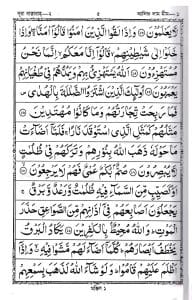 সূরা বাক্বারাহ্—২ ৫ আলিফ লাম মীম—১
لَّا يَعْلَمُوْنَ ۝ وَاِذَا لَقُوا الَّذِيْنَ اٰمَنُوْا قَالُوْٓا اٰمَنَّا ۚ وَاِذَا
خَلَوْا اِلٰى شَيٰطِيْنِهِمْ ۙ قَالُوْٓا اِنَّا مَعَكُمْ ۙ اِنَّمَا نَحْنُ
مُسْتَهْزِءُوْنَ ۝ اَللّٰهُ يَسْتَهْزِئُ بِهِمْ وَيَمُدُّهُمْ فِيْ طُغْيَانِهِمْ
يَعْمَهُوْنَ ۝ اُولٰٓئِكَ الَّذِيْنَ اشْتَرَوُا الضَّلٰلَةَ بِالْهُدٰى فَمَا
رَبِحَتْ تِّجَارَتُهُمْ وَمَا كَانُوْا مُهْتَدِيْنَ ۝ مَثَلُهُمْ
كَمَثَلِ الَّذِي اسْتَوْقَدَ نَارًا ۚ فَلَمَّآ اَضَآءَتْ
مَا حَوْلَهٗ ذَهَبَ اللّٰهُ بِنُوْرِهِمْ وَتَرَكَهُمْ فِيْ ظُلُمٰتٍ
لَّا يُبْصِرُوْنَ ۝ صُمٌّۢ بُكْمٌ عُمْيٌ فَهُمْ لَا يَرْجِعُوْنَ ۝
اَوْ كَصَيِّبٍ مِّنَ السَّمَآءِ فِيْهِ ظُلُمٰتٌ وَّرَعْدٌ وَّبَرْقٌ ۚ
يَجْعَلُوْنَ اَصَابِعَهُمْ فِيْٓ اٰذَانِهِمْ مِّنَ الصَّوَاعِقِ حَذَرَ
الْمَوْتِ ؕ وَاللّٰهُ مُحِيْطٌۢ بِالْكٰفِرِيْنَ ۝ يَكَادُ الْبَرْقُ
يَخْطَفُ اَبْصَارَهُمْ ؕ كُلَّمَآ اَضَآءَ لَهُمْ مَّشَوْا فِيْهِ ۙ وَاِذَآ
اَظْلَمَ عَلَيْهِمْ قَامُوْا ؕ وَلَوْ شَآءَ اللّٰهُ لَذَهَبَ بِسَمْعِهِمْ
মঞ্জিল ১